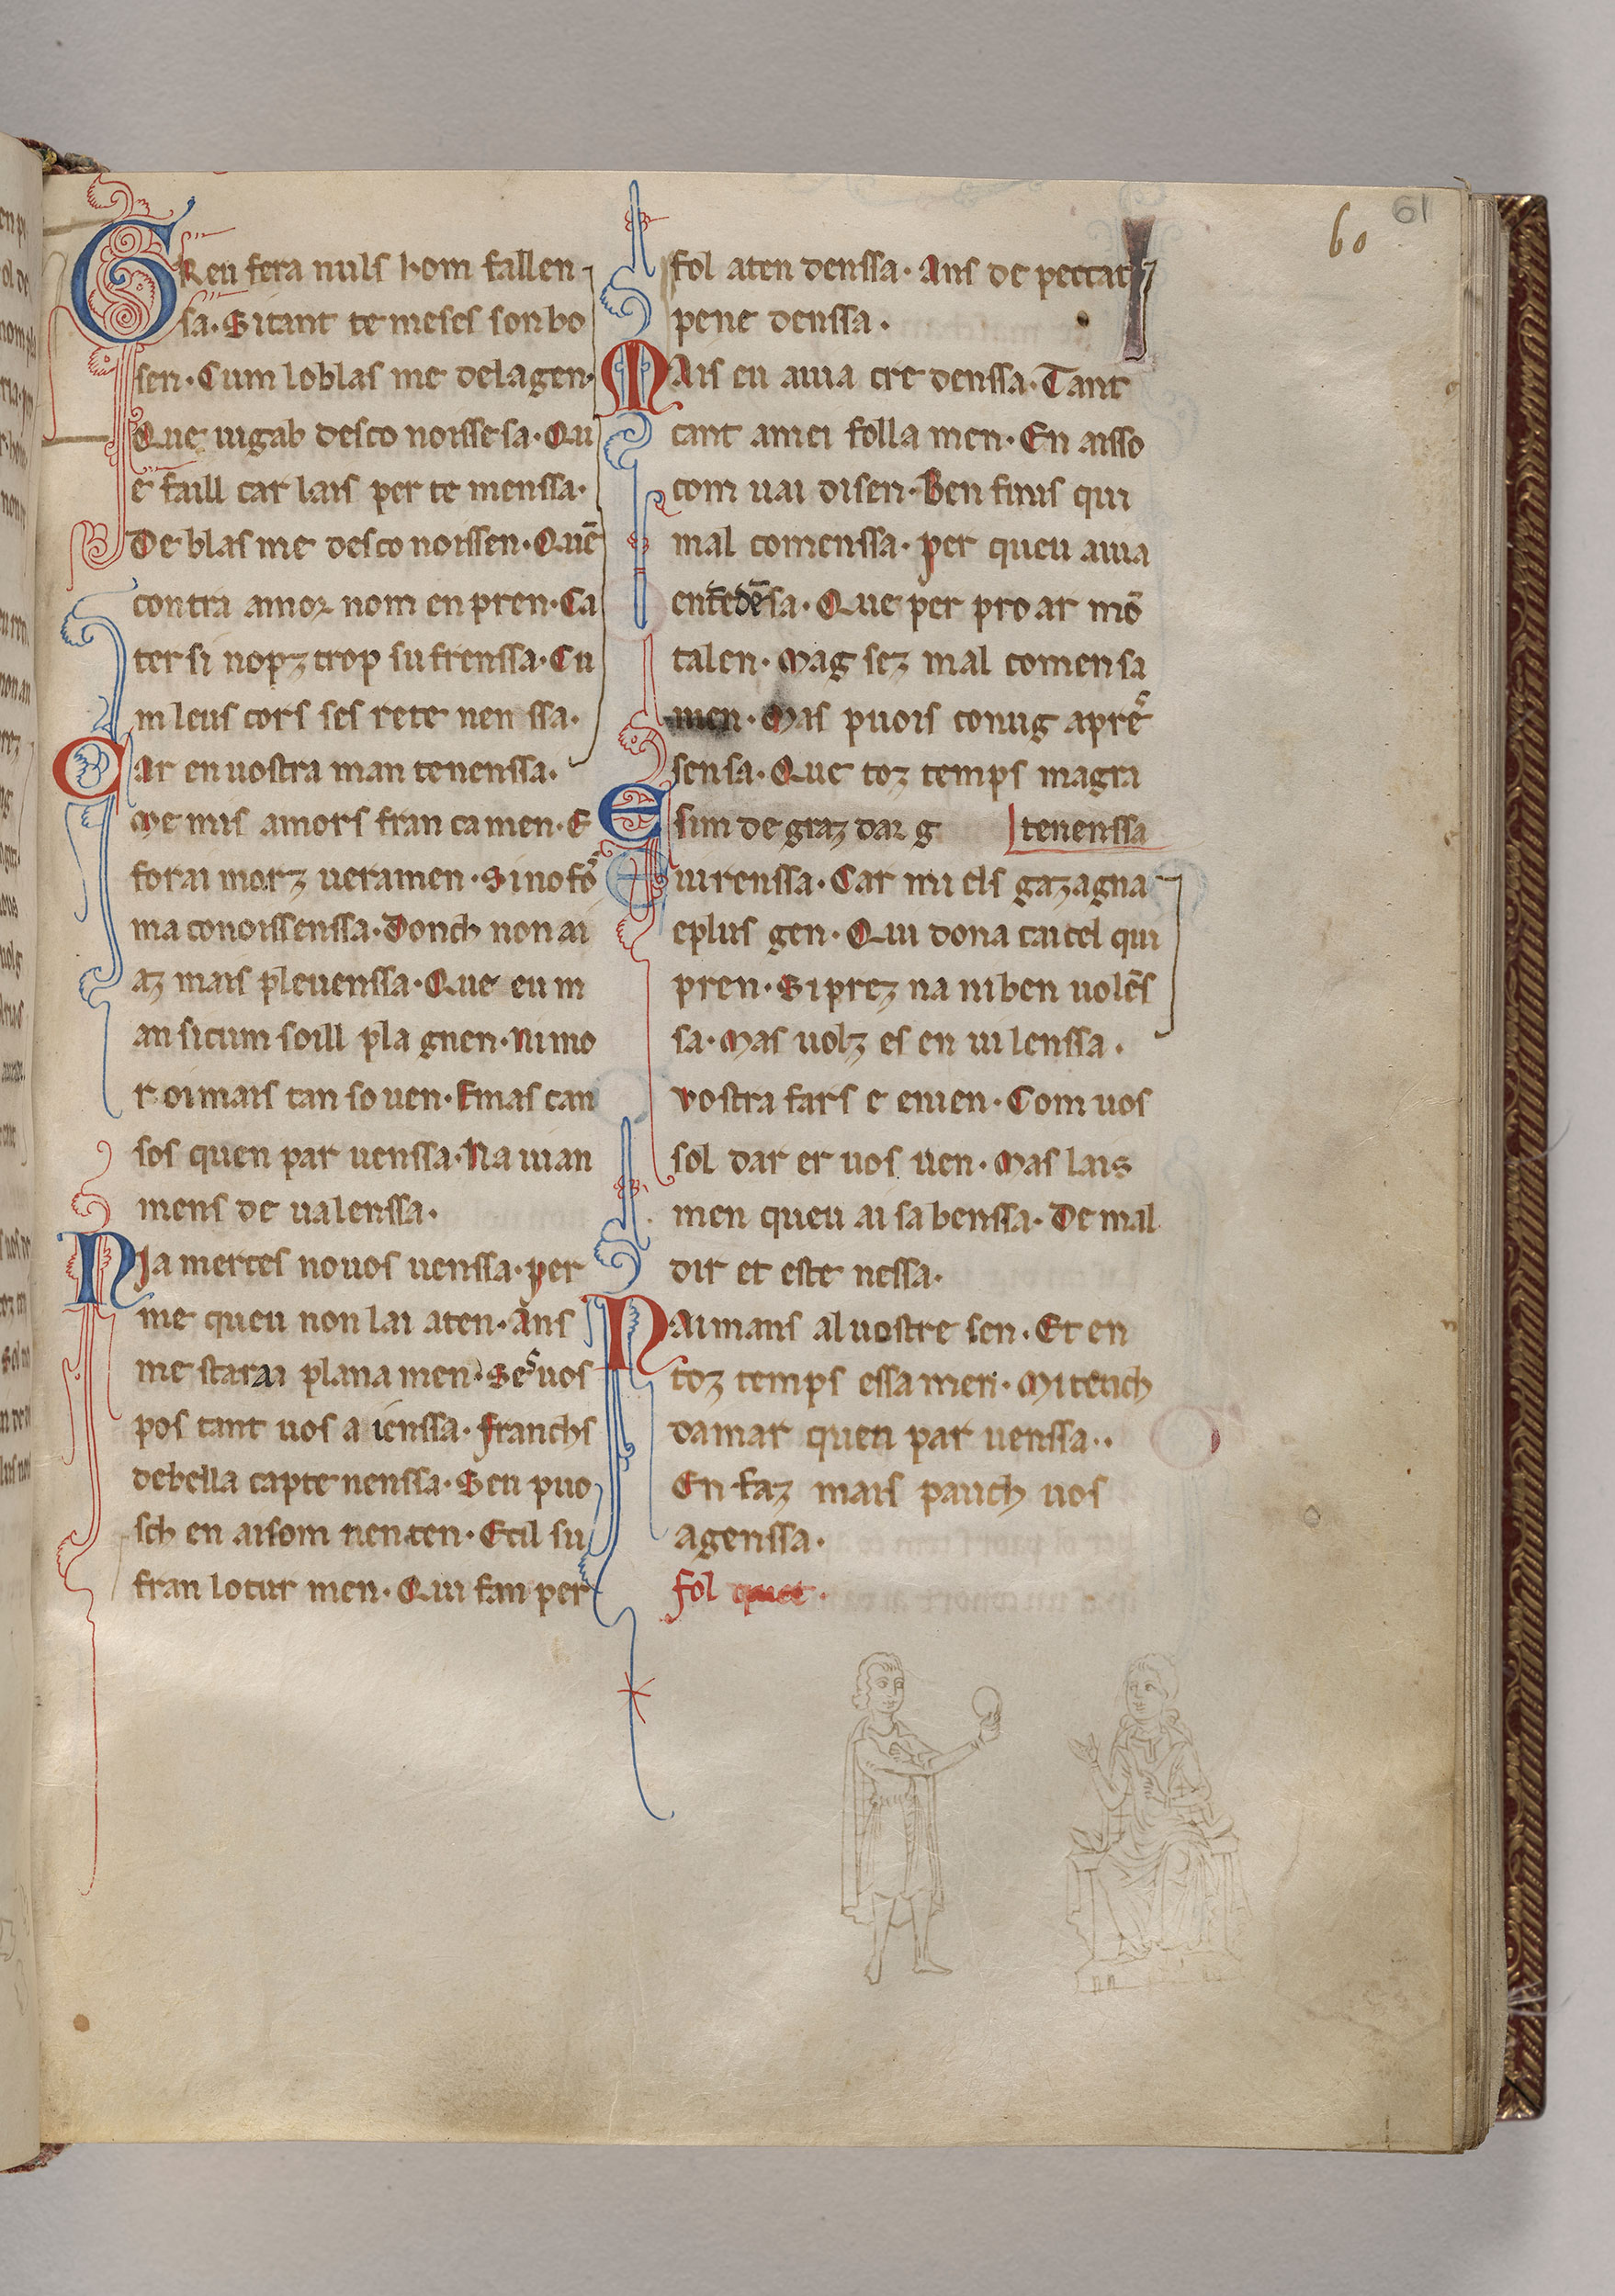 60
61
GReu fera nuls hom fallen
sa. Si tant temeses son bo
sen. Cum lo blasme de la gen.
Que iugab desconoissesa. Qu
e faill car lais per temenssa.
De blasme desconoissen. Quē
contra amor nom enpren. Ca
tersi nopz trop sufrenssa. Cu
m leus cors ses retenenssa.
Car en uostra mantenenssa.
Me mis amors francamen. E
fora i morz ueramen. Si no fos
ma conoissenssa. Donch non ai
az mais pleuenssa. Que eu m
an si cum soill plagnen. Ni mo
r oimais tan souen. E mas can
sos quen paruenssa. Na uian
mens de ualenssa.
Na merces no uos uenssa. per
me queu non lai aten. Ans
me starai planamen. Ses uos
pos tant uos aienssa. franchs
de bella captenenssa. Seu puo
sch en aisom nenten. E cil su
fran lo turmen. Qui fan per
fol atendenssa. Ans de peccat
penedenssa.
Mais eu auia credenssa. Tant
cant amei follamen. En aisso
com uai disen. Ben finis qui
mal comenssa. per queu auia
entedēsa. Que per proar mō
talen. Magsez mal comensa
men. Mas puois conug apres
sensa. Que toz temps magra
E sim degraz dar g
tenenssa
uirenssa. Car miels gazagna
e plus gen. Qui dona cai cel qui
pren. Si prez na ni benuolēs
sa. Mas uolz es en uilenssa.
vostra fars e enien. Com uos
sol dar er uos uen. Mas lais
men queu ai sabenssa. De mal
dir et estenessa.
Naimans al uostre sen. Et en
toz temps essamen. Mi tench
damar quen paruenssa..
En faz mais pauch uos
agenssa.
fol